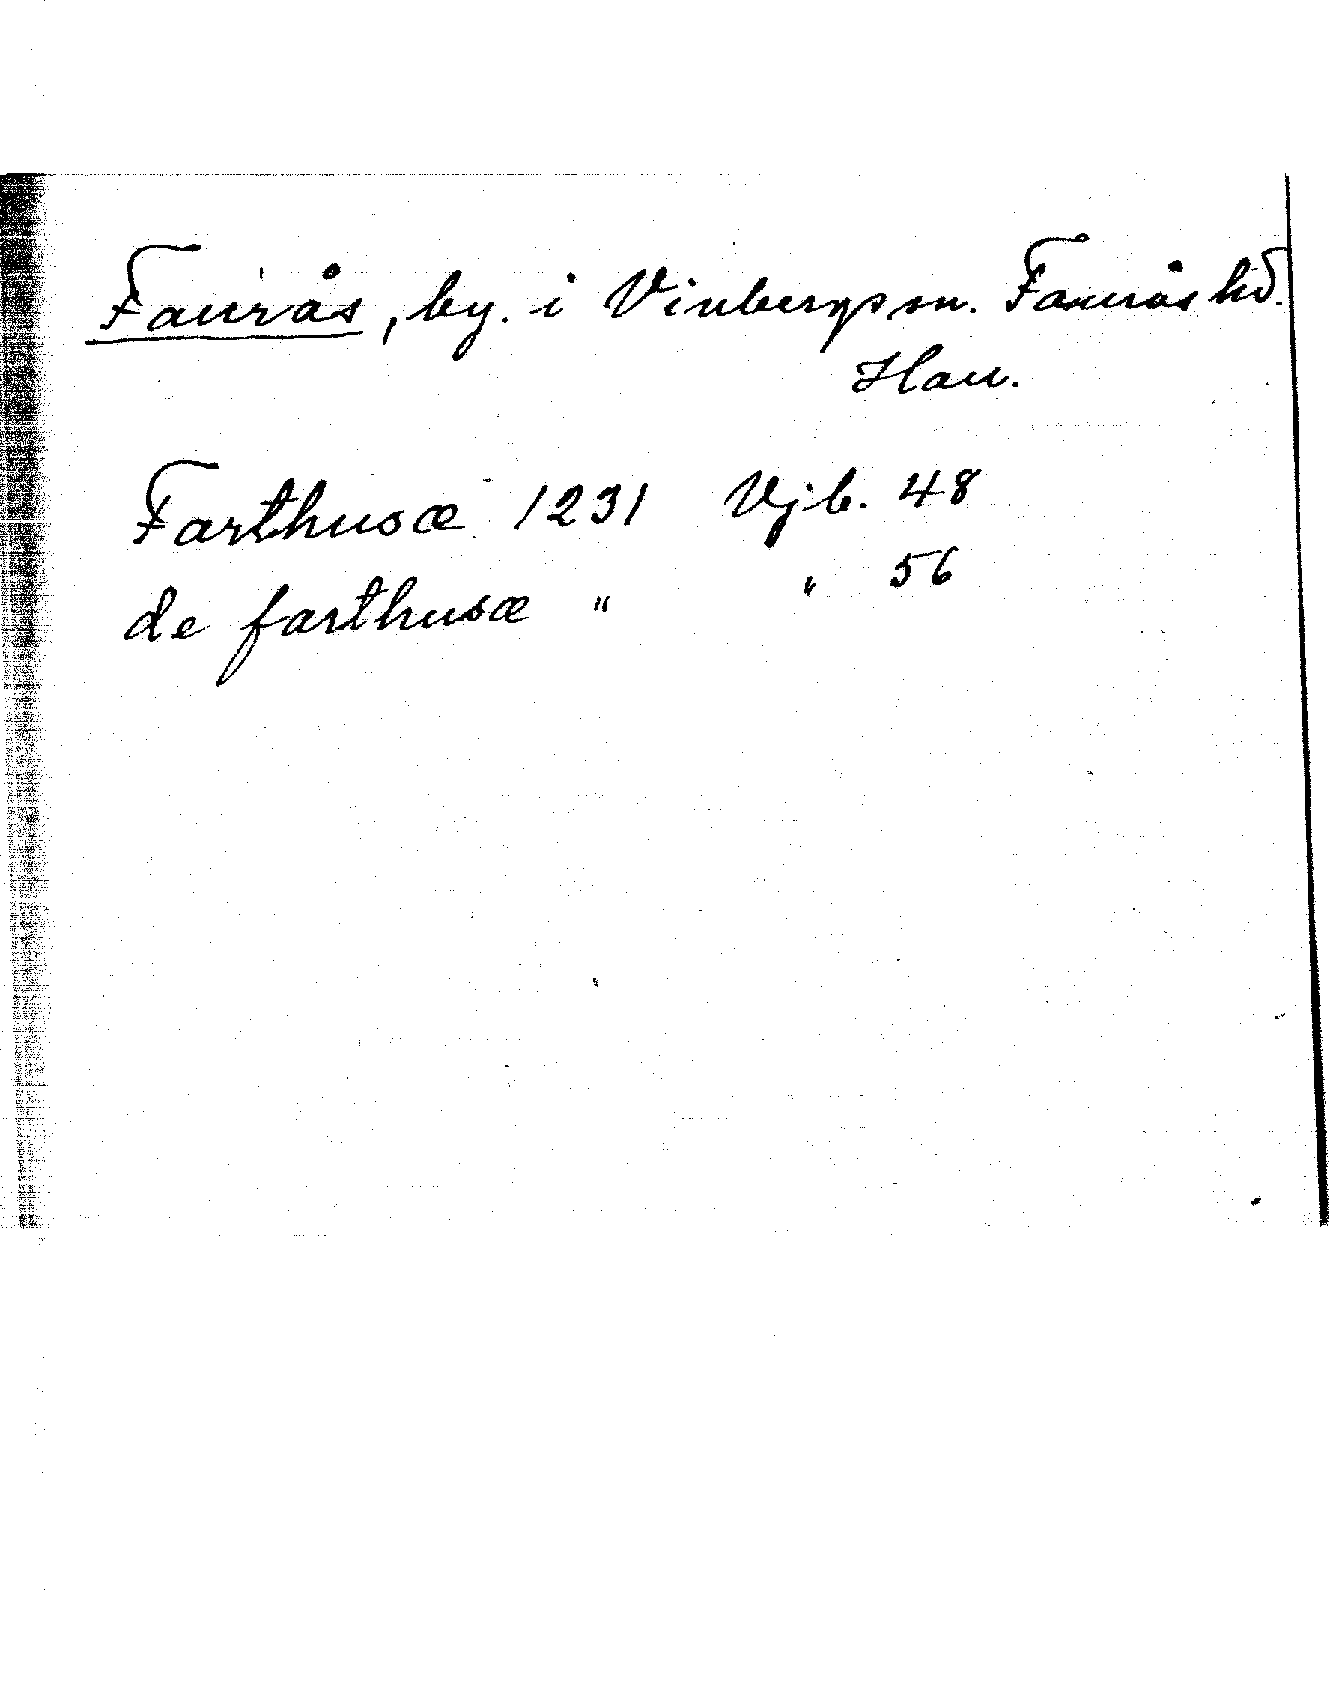 Faurås, by. i Vinbergs sn. Faurås hd.
Hall.
Farthusæ 1231 Vjb. 48
de farthusæ " " 56